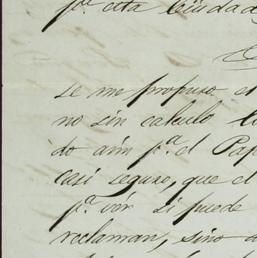 p.ª esta Ciudad
se me propuso el
no sin calculo
do aún p.ª el Pap
casi seguro, que el
p.ª vér si puede
reclaman, sino a